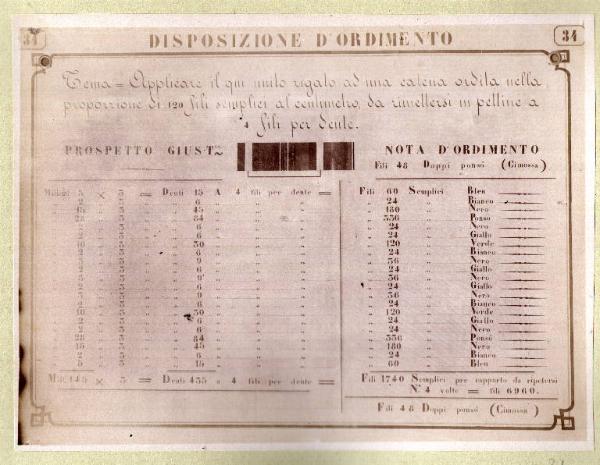 34 DISPOSIZIONE D'ORDIMENTO 34
Tema = Applicare il qui unito rigato ad una catena ordita nella
proporzione di 120 fili semplici al centimetro, da rimettersi in pettine a
4 fili per dente.
PROSPETTO GIUSTZ
5 × 3 = Denti 15 A 4 fili per dente =
2 " 3 " " 6 " " " "
15 " 3 " " 45 " " " "
28 " 3 " " 84 " " " "
2 " 3 " " 6 " " " "
2 " 3 " " 6 " " " "
10 " 3 " " 30 " " " "
2 " 3 " " 6 " " " "
3 " 3 " " 9 " " " "
2 " 3 " " 6 " " " "
3 " 3 " " 9 " " " "
2 " 3 " " 6 " " " "
3 " 3 " " 9 " " " "
2 " 3 " " 6 " " " "
10 " 3 " " 30 " " " "
2 " 3 " " 6 " " " "
2 " 3 " " 6 " " " "
28 " 3 " " 84 " " " "
15 " 3 " " 45 " " " "
2 " 3 " " 6 " " " "
5 " 3 " " 15 " " " "
Mill. 145 × 3 = Denti 435 a 4 fili per dente =
NOTA D'ORDIMENTO
Fili 48 Doppi ponsò (Cimossa)
Fili 60 Semplici Bleu
" 24 " Bianco
" 180 " Nero
" 336 " Ponso
" 24 " Nero
" 24 " Giallo
" 120 " Verde
" 24 " Bianco
" 36 " Nero
" 24 " Giallo
" 36 " Nero
" 24 " Giallo
" 36 " Nero
" 24 " Bianco
" 120 " Verde
" 24 " Giallo
" 24 " Nero
" 336 " Ponsò
" 180 " Nero
" 24 " Bianco
" 60 " Bleu
Fili 1740 Semplici per rapporto da ripetersi
N.º 4 volte = fili 6960.
Fili 48 Doppi ponsò (Cimossa)